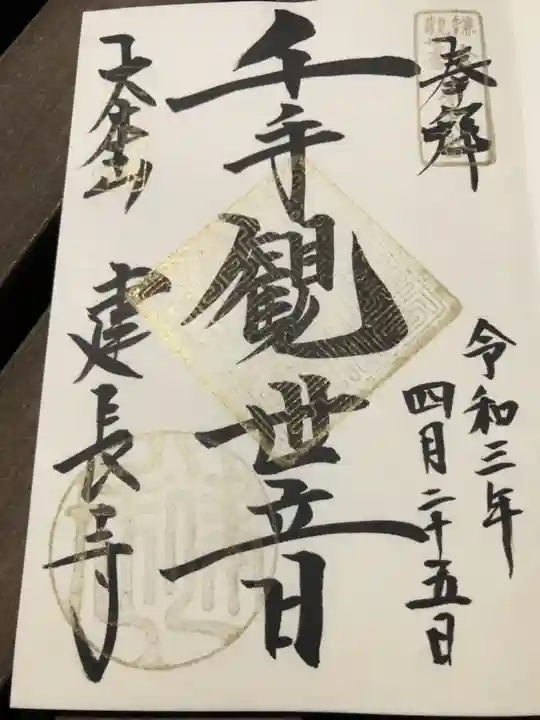 奉拝
令和三年
四月二十五日
千手観世音
天下山
建長寺